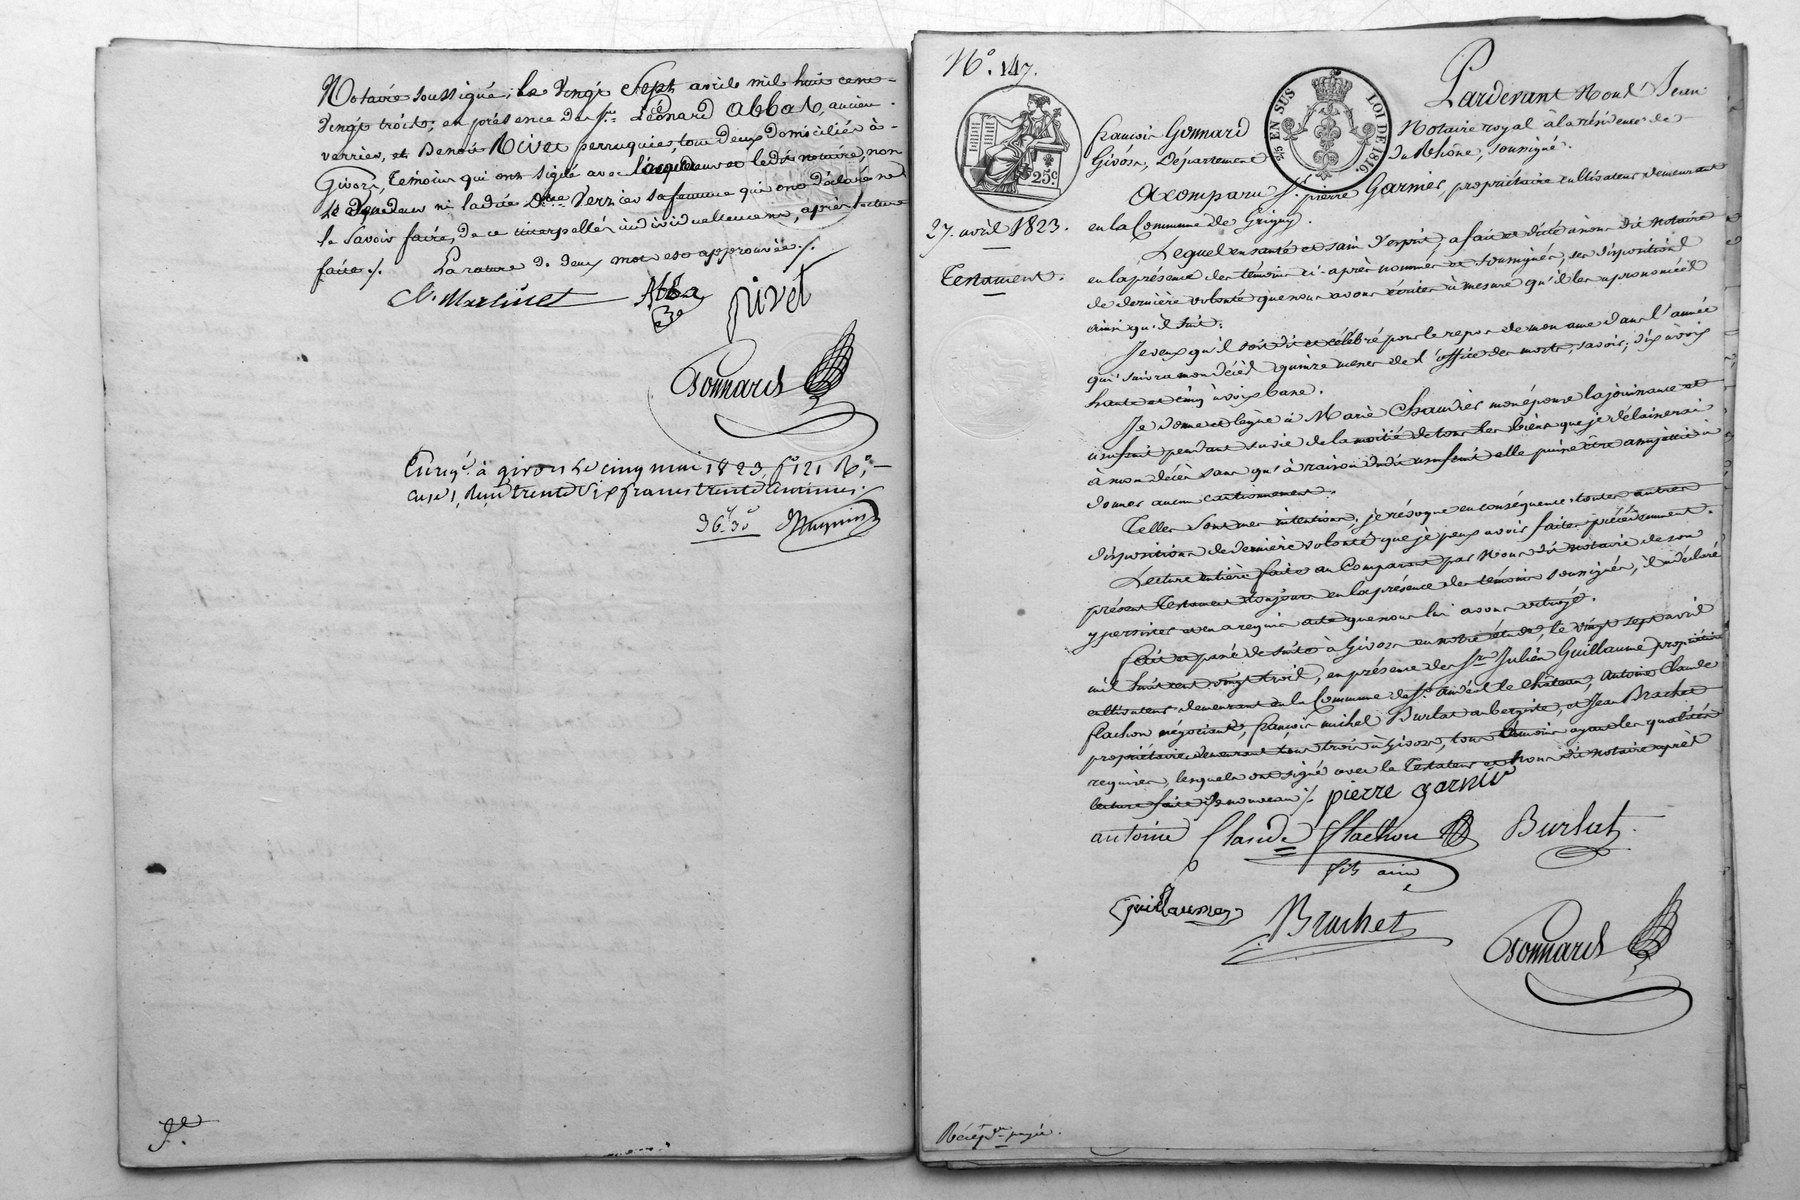 Notaire soussigné, le vingt sept avril mil huit cent
vingt trois; en présence de Sr. Léonard Abbat, ancien
verrier, et Benoit Rivet perruquier, tous deux domiciliés à
Givors, témoins qui ont signé avec ledit notaire, non
ni ladite Verzier sa femme qui ont déclaré ne
le savoir faire, de ce interpellés individuellement, après lecture
faite ./. La rature de deux mots est approuvée ./.
Martinet Abba rivet
Gonnard
Enregé. à givors le cinq mai 1823, fo 121 Ro,
case 1, Reçu trente six francs trente centimes.
36f 30c
No. 147.
25c
5/5 EN SUS LOI DE 1816.
Pardevant Nous Jean
françois Gonnard Notaire royal à la résidence de
Givors, Département du Rhône, soussigné.
A comparu Sr. pierre Garnier, propriétaire cultivateur demeurant
27. avril 1823. en la Commune de Grigny.
Testament.
Lequel en santé et sain d'esprit, a fait et dicté à nous dit notaire
en la présence des témoins ci-après nommés et soussignés, ses dispositions
de dernière volonté que nous avons écrites à mesure qu'il les a prononcées
ainsi qu'il suit:
Je veux qu'il soit dit et célébré pour le repos de mon ame dans l'année
qui suivra mon décès quinze messes de l'office des morts, savoir; dix à voix
haute et cinq à voix basse.
Je donne et lègue à Marie Chauvier mon épouse la jouissance et
usufruit pendant sa vie de la moitié de tous les biens que je délaisserai
à mon décès sans qu'à raison dudit usufruit elle puisse être assujettie à
donner aucun cautionnement.
Telles sont mes intentions, je révoque en conséquence toutes autres
dispositions de dernière volonté que je peux avoir faites précédemment.
Lecture entière faite au Comparant par Nous dit notaire de son
présent Testament toujours en la présence des témoins soussignés, il a déclaré
y persister et en a requis acte que nous lui avons octroyé.
fait et passé de suite à Givors en notre étude, le vingt sept avril
mil huit cent vingt trois, en présence des Srs. Julien Guillaume propriétaire
cultivateur demeurant en la Commune de St. andéol le Château, Antoine Claude
flachon négociant, françois michel Burlat aubergiste, et Jean Brachet
propriétaire demeurant tous trois à Givors, tous témoins ayant les qualités
requises, lesquels ont signé avec le Testateur et Nous dit notaire après
lecture faite de nouveau ./. pierre garnier
antoine Claude flachon Burlat
fils ainé
Guillaume Brachet
Gonnard